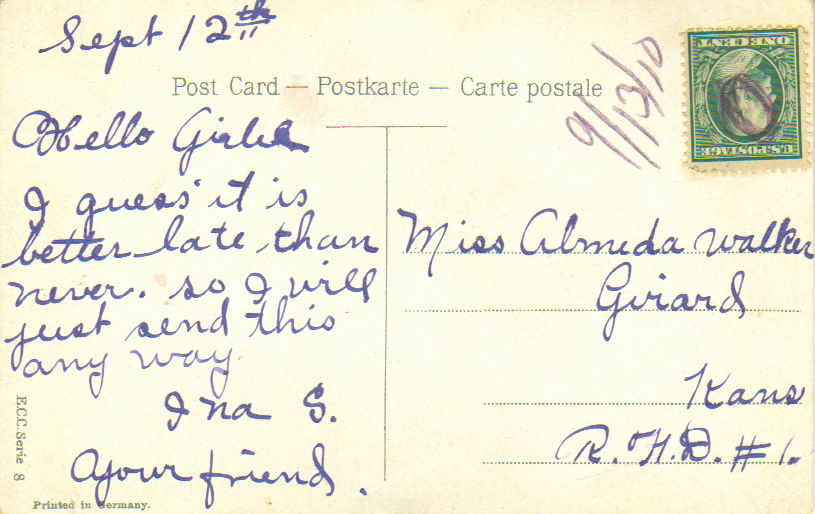 Sept 12th
Post Card — Postkarte — Carte postale
9/13/10
ONE CENT
U.S. POSTAGE
Hello Girlie
I guess it is
better late than
never. so I will
just send this
any way.
Ina S.
your friend.
Miss Almeda Walker
Girard
Kans
R.F.D. #1.
E.C.C. Serie 8
Printed in Germany.